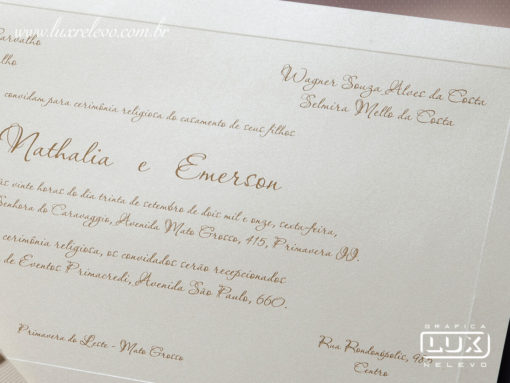 www.luxrelevo.com.br
Carvalho
Wagner Souza Alves da Costa
Selmira Mello da Costa
convidam para cerimônia religiosa do casamento de seus filhos
Nathalia e Emerson
às vinte horas do dia trinta de setembro de dois mil e onze, sexta-feira,
Senhora do Caravaggio, Avenida Mato Grosso, 415, Primavera II.
cerimônia religiosa, os convidados serão recepcionados
de Eventos Primacredi, Avenida São Paulo, 660.
Primavera do Leste - Mato Grosso
Rua Rondonópolis, 985
Centro
GRÁFICA
LUX
RELEVO